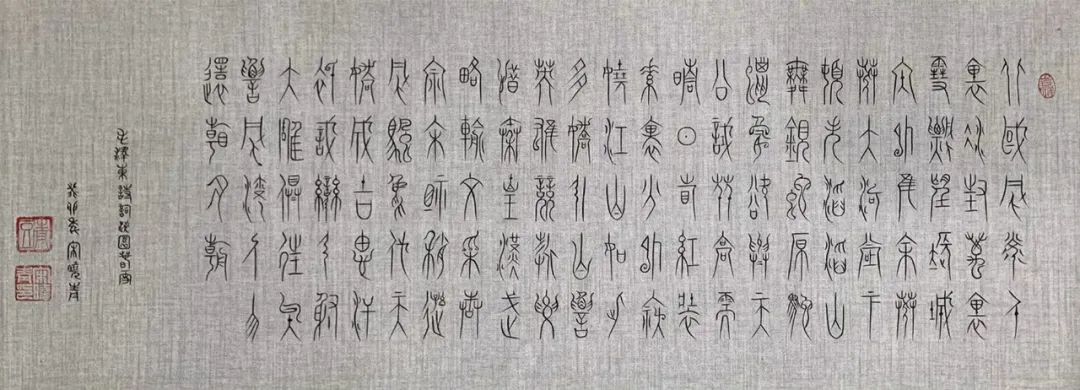 北國風光千
里冰封萬里
雪飄望長城
內外惟餘莽
莽大河上下
頓失滔滔山
舞銀蛇原馳
蠟象欲與天
公試比高須
晴日看紅裝
素裹分外妖
嬈江山如此
多嬌引無數
英雄競折腰
惜秦皇漢武
略輸文采唐
宗宋祖稍遜
風騷一代天
驕成吉思汗
只識彎弓射
大雕俱往矣
數風流人物
還看今朝
毛澤東詩詞沁園春雪
癸卯 宋曉青